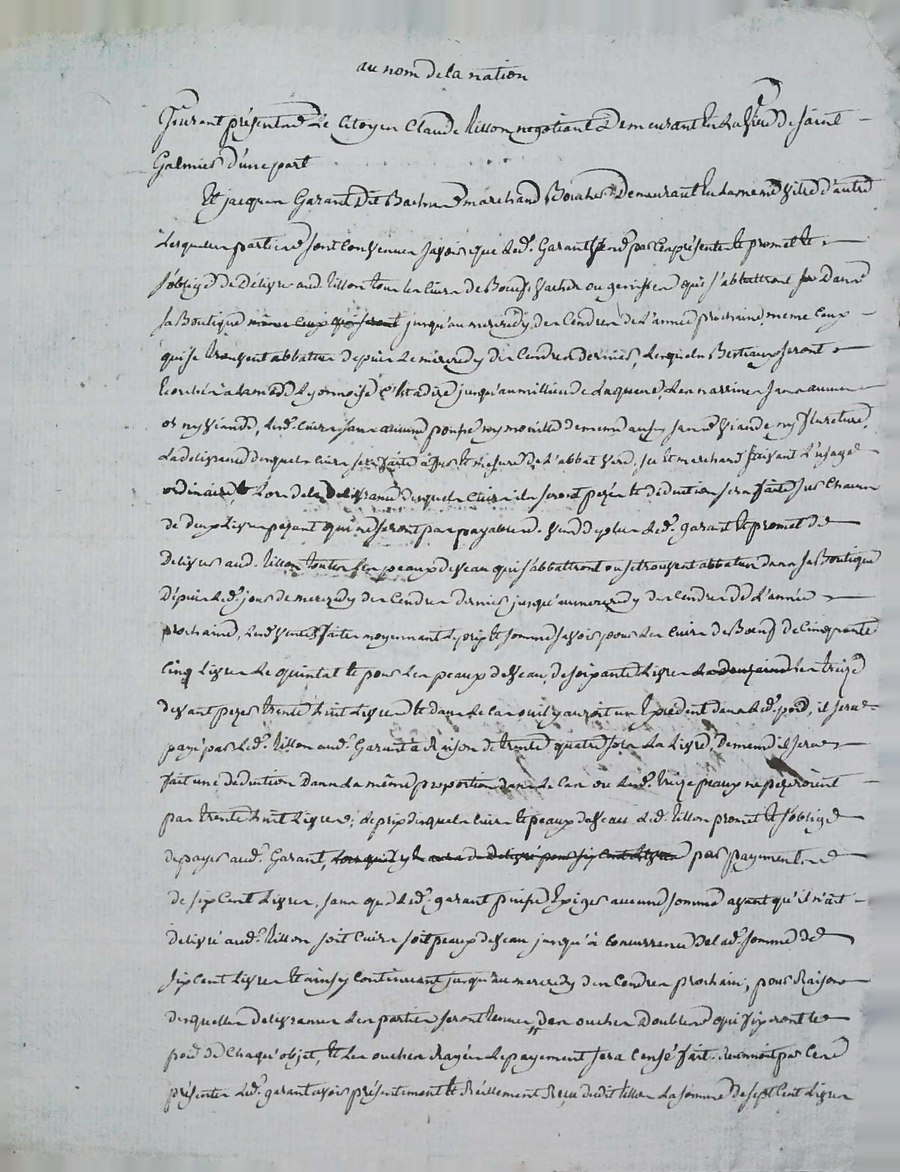 au nom de la nation
furent présents Le Citoyen Claude tillon negotiant Demeurant En La ville de saint
Galmier d'une part
Et jacques Garant Dit Marchand Boucher Demeurant En La meme ville d'autre
Lesquelles parties sont Convenues savoir que led. Garant vend par Ces présentes Et promet Et
s'oblige de Délivrer aud. tillon tous les Cuirs de Bœufs vaches ou genisses qui s'abbattront Dans
sa Boutique même Ceux qui seront jusqu'au mercredy des Cendres de L'année prochaine, meme Ceux
qui se trouvent abbattus depuis Le mercredy des Cendres dernier, Lesquels Bestiaux seront
Ecorchés à La mode Lyonnoise C'Est à dire jusqu'au millieu de La queue, Les narrines sans aucuns
os ny viande, Les Cuirs sans aucune ny mouille demeure aussy sans viande ny
La délivrance desquels Cuirs sera faite à Et mesure de L'abbat vend, sec Et marchand suivant L'usage
ordinaire Et Lors de la Delivrance desquels Cuirs ils seront pezés Et déduction sera faite sur Chacun
de deux Livres pezant qui ne seront pas payables. vend de plus Led. garant Et promet de
Delivrer aud. tillon toutes Les peaux de veau qui s'abbattront ou se trouvent abbattues dans sa Boutique
Depuis Led. jour de mercredy des Cendres dernier jusqu'au mercredy des Cendres de L'année
prochaine, Lesd. ventes faites moyennant Le prix Et somme savoir pour Les Cuirs de Bœuf de Cinquante
Cinq Livres Le quintal Et pour Les peaux de veau, de soixante Livres La douzaine Les treize
devant pezer trente huit Livres Et dans Le Cas ou il y auroit un Excédent dans Led. poid, il sera
payé par Led. tillon aud. Garant à Raison de trente quatre sols La Livre, De meme il sera
fait une deduction Dans La même proportion dans Le Cas où Lesd. treize peaux ne pezeroient
pas trente huit Livres; Le prix desquels Cuirs Et peaux de veau Led. tillon promet Et s'oblige
de payer aud. Garant, Lorsqu'il y en aura de Delivré pour six Cent Livres par payement
de six Cent Livres, sans que Led. garant puisse Exiger aucune somme avant qu'il n'ait
délivré aud. tillon soit Cuirs soit peaux de veau jusqu'à Concurrence de lad. somme de
six Cent Livres Et ainsy Continuant jusqu'au mercredy des Cendres prochain; pour Raison
desquelles délivrances Les parties seront tenues, des ouches Doubles qui fixeront le
poid de Chaqu'objet, Et Les ouches Rayées Le payement sera Censé fait. Reconnoit par Ces
présentes Led. garant avoir présentement Et Réellement Reçu dudit tillon La somme de sept Cent Livres